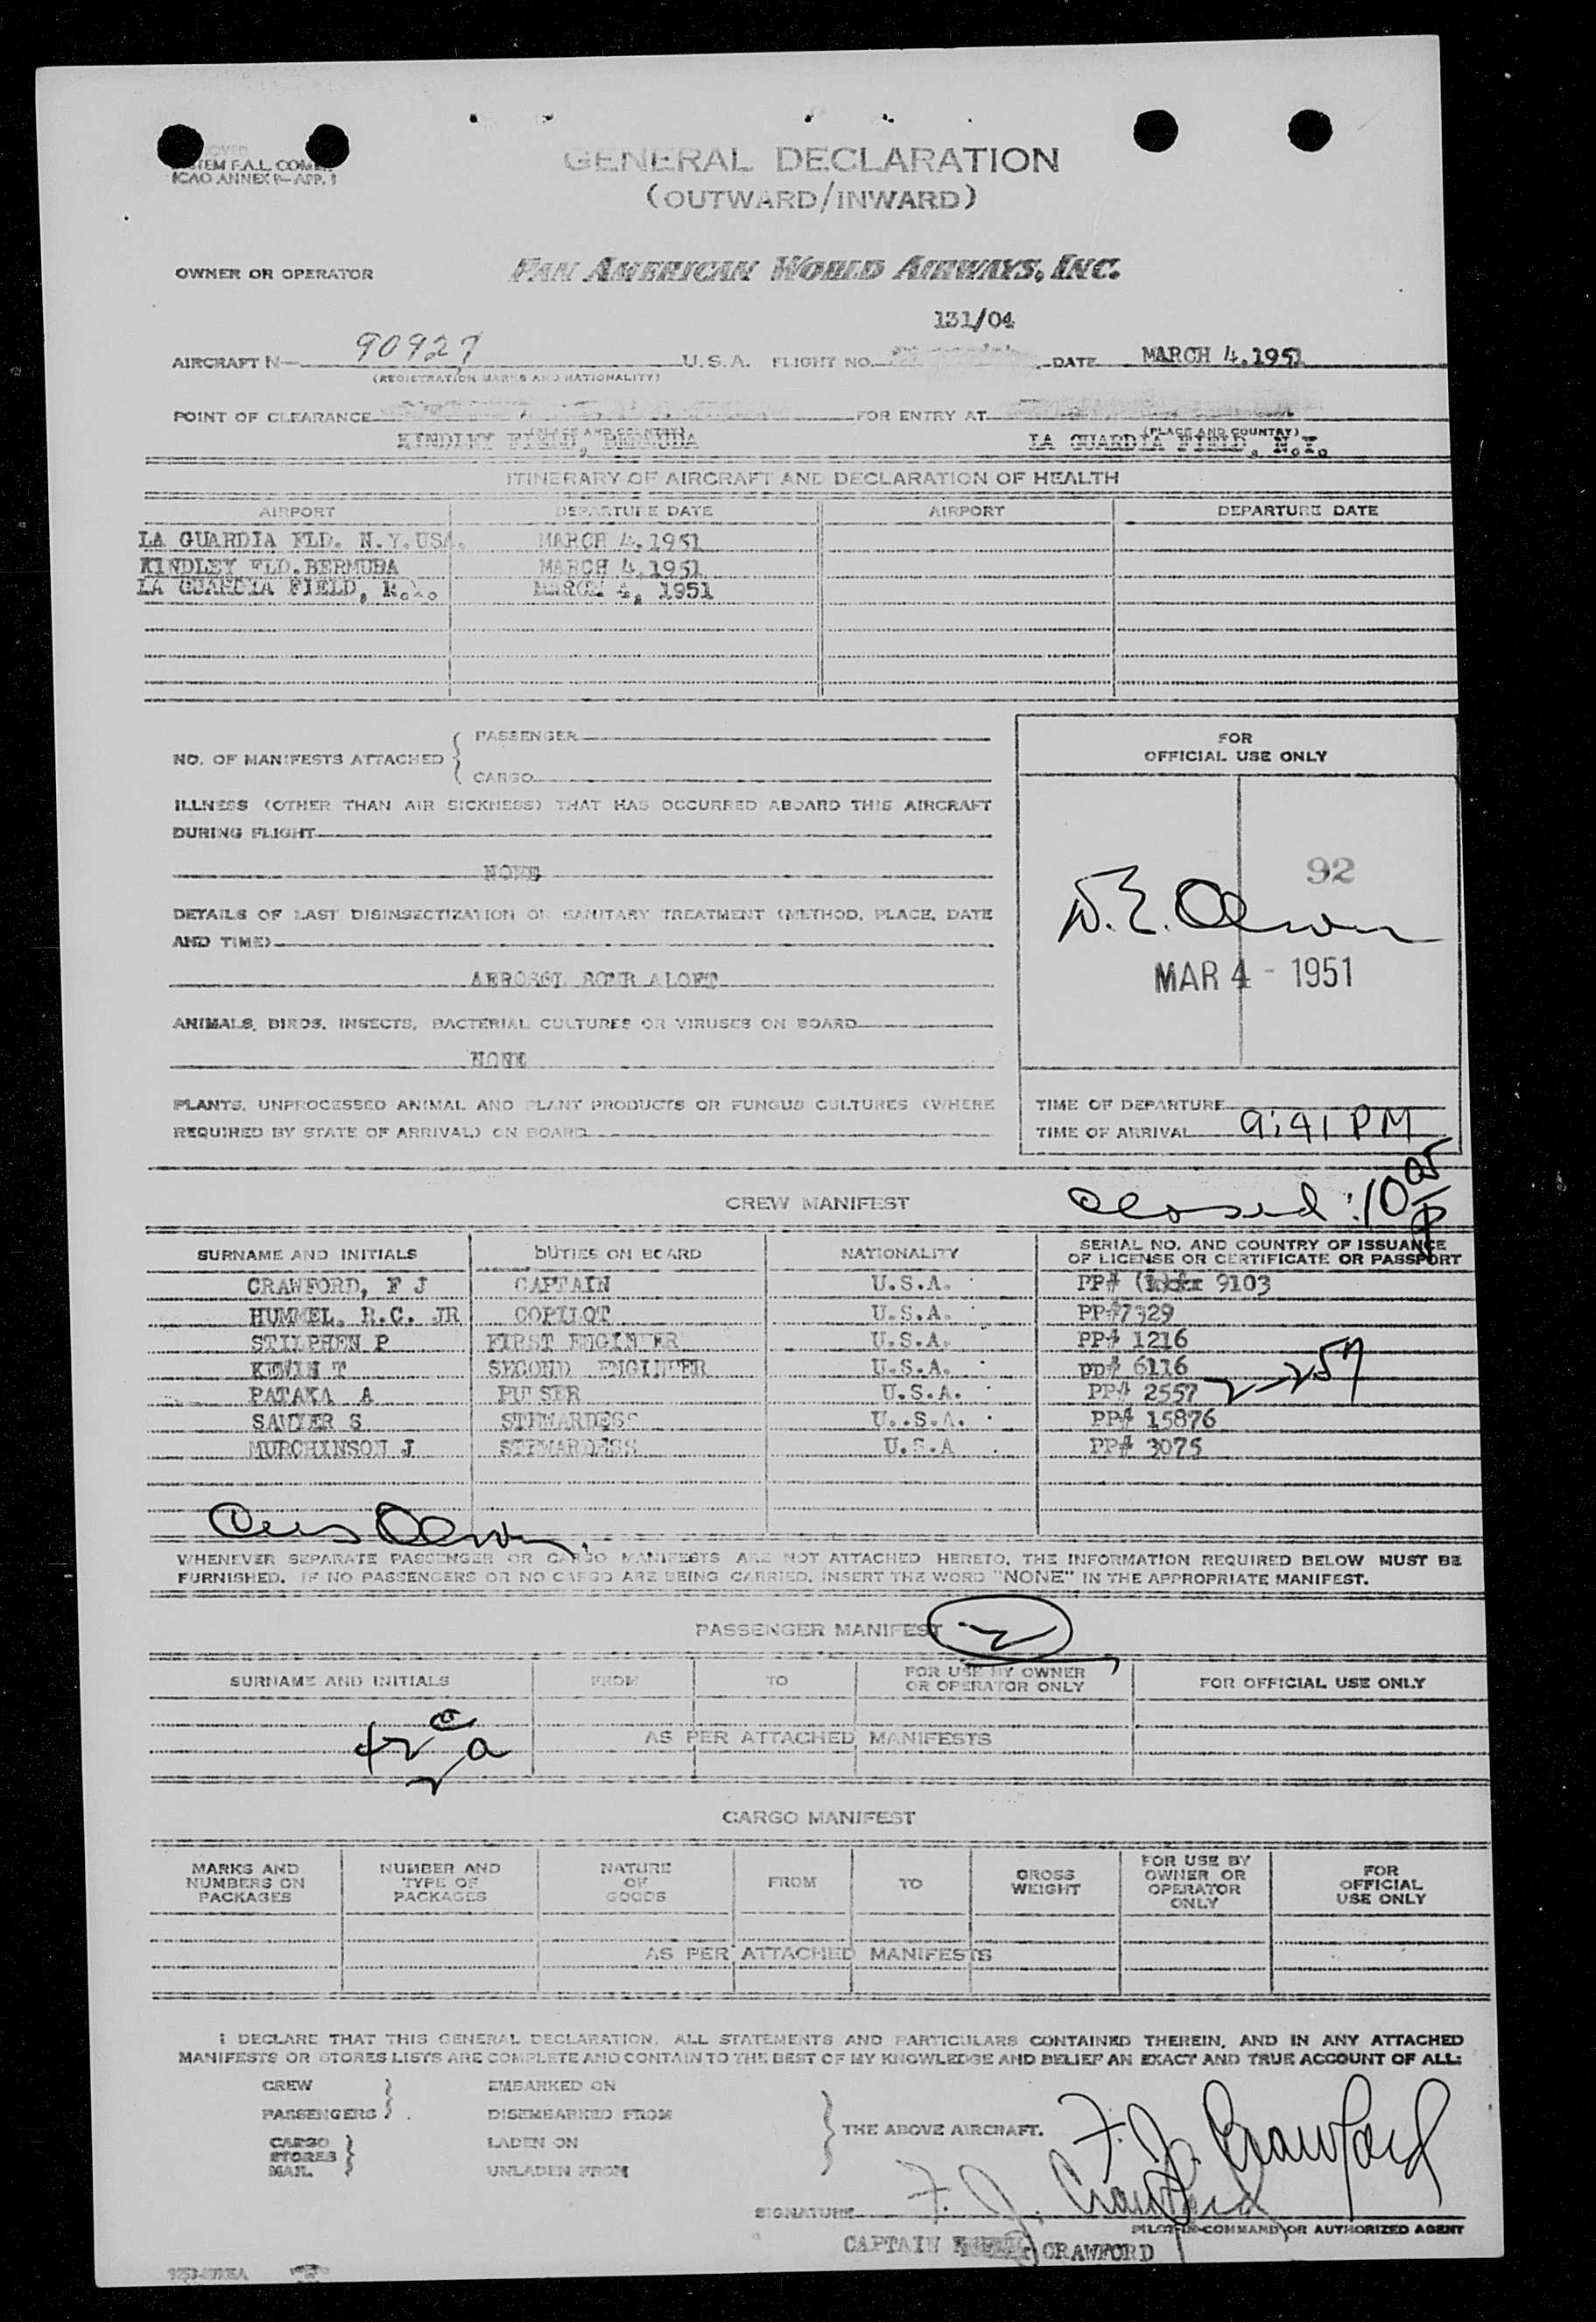 GENERAL DECLARATION
(OUTWARD/INWARD)
TEM F.A.L. COM
ICAO ANNEX 9—APP. 1
OWNER OR OPERATOR PAN AMERICAN WORLD AIRWAYS, INC.
131/04
AIRCRAFT N— 90927 U.S.A. FLIGHT NO. DATE MARCH 4,1951
(REGISTRATION MARKS AND NATIONALITY)
POINT OF CLEARANCE FOR ENTRY AT
(PLACE AND COUNTRY) (PLACE AND COUNTRY)
KINDLEY FIELD, BERMUDA LA GUARDIA FIELD, N.Y.
ITINERARY OF AIRCRAFT AND DECLARATION OF HEALTH
AIRPORT DEPARTURE DATE AIRPORT DEPARTURE DATE
LA GUARDIA FLD. N.Y.USA. MARCH 4,1951
KINDLEY FLD.BERMUDA MARCH 4,1951
LA GUARDIA FIELD, N.Y. MARCH 4, 1951
NO. OF MANIFESTS ATTACHED { PASSENGER
CARGO
FOR
OFFICIAL USE ONLY
ILLNESS (OTHER THAN AIR SICKNESS) THAT HAS OCCURRED ABOARD THIS AIRCRAFT
DURING FLIGHT
NONE
92
DETAILS OF LAST DISINSECTIZATION OR SANITARY TREATMENT (METHOD, PLACE, DATE
AND TIME)
D.E. Olson
AEROSOL BOMB ALOFT
MAR 4 - 1951
ANIMALS, BIRDS, INSECTS, BACTERIAL CULTURES OR VIRUSES ON BOARD
NONE
PLANTS, UNPROCESSED ANIMAL AND PLANT PRODUCTS OR FUNGUS CULTURES (WHERE
REQUIRED BY STATE OF ARRIVAL) ON BOARD
TIME OF DEPARTURE
TIME OF ARRIVAL 9:41 PM
CREW MANIFEST
Closed: 10 05 P
SURNAME AND INITIALS DUTIES ON BOARD NATIONALITY SERIAL NO. AND COUNTRY OF ISSUANCE
OF LICENSE OR CERTIFICATE OR PASSPORT
CRAWFORD, F J CAPTAIN U.S.A. PP# 9103
HUMMEL, R.C. JR COPILOT U.S.A. PP#7329
STILPHEN P FIRST ENGINEER U.S.A. PP# 1216
KEWIN T SECOND ENGINEER U.S.A. pp# 6116
PATAKA A PURSER U.S.A. PP# 2557
SAWYER S STEWARDESS U..S.A. PP# 15876
MURCHINSON J STEWARDESS U.S.A PP# 3075
WHENEVER SEPARATE PASSENGER OR CARGO MANIFESTS ARE NOT ATTACHED HERETO, THE INFORMATION REQUIRED BELOW MUST BE
FURNISHED. IF NO PASSENGERS OR NO CARGO ARE BEING CARRIED, INSERT THE WORD "NONE" IN THE APPROPRIATE MANIFEST.
PASSENGER MANIFEST
SURNAME AND INITIALS FROM TO FOR USE BY OWNER
OR OPERATOR ONLY FOR OFFICIAL USE ONLY
AS PER ATTACHED MANIFESTS
CARGO MANIFEST
MARKS AND
NUMBERS ON
PACKAGES
NUMBER AND
TYPE OF
PACKAGES
NATURE
OF
GOODS
FROM
TO
GROSS
WEIGHT
FOR USE BY
OWNER OR
OPERATOR
ONLY
FOR
OFFICIAL
USE ONLY
AS PER ATTACHED MANIFESTS
I DECLARE THAT THIS GENERAL DECLARATION, ALL STATEMENTS AND PARTICULARS CONTAINED THEREIN, AND IN ANY ATTACHED
MANIFESTS OR STORES LISTS ARE COMPLETE AND CONTAIN TO THE BEST OF MY KNOWLEDGE AND BELIEF AN EXACT AND TRUE ACCOUNT OF ALL:
CREW EMBARKED ON
PASSENGERS DISEMBARKED FROM
THE ABOVE AIRCRAFT.
CARGO LADEN ON
STORES
MAIL UNLADEN FROM
F. J. Crawford
SIGNATURE F. J. Crawford
PILOT-IN-COMMAND OR AUTHORIZED AGENT
CAPTAIN CRAWFORD